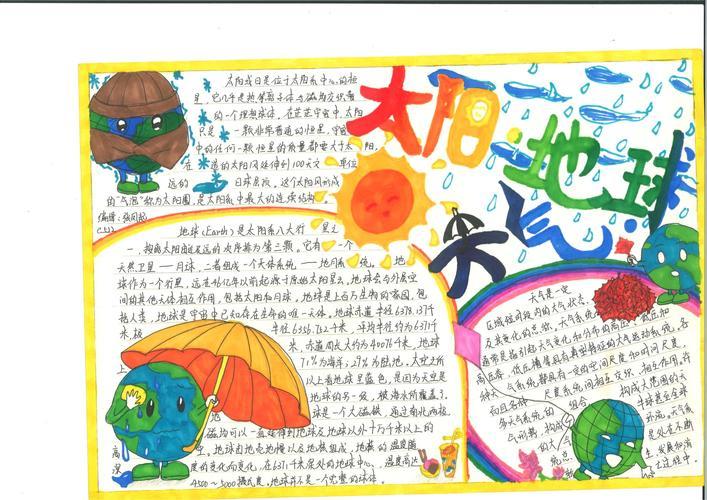 太阳 地球
天气
太阳或日是位于太阳系中心的恒
星,它几乎是热等离子体与磁场交织着
的一个理想球体。在茫茫宇宙中,太阳
只是一颗非常普通的恒星,宇宙
中的任何一颗恒星的质量都要大于太阳,
在 遥的太阳风延伸到100天文 单位
远的 日球层顶。这个太阳风形成
的“气泡”称为太阳圈,是太阳系中最大的连续结构。
编辑:
地球(Earth)是太阳系八大行 星之
一,按离太阳由近及远的次序排为第三颗。它有 一个
天然卫星——月球,二者组成一个天体系统——地月系 统。 地
球作为一个行星,远在46亿年以前起源于原始太阳星云。地球会与外层空
间的其他天体相互作用,包括太阳和月球。地球是上百万生物的家园,包
括人类,地球是宇宙中已知存在生命的唯一天体。地球赤道半径6378.137千
米,极 半径6356.752千米,平均半径约6371千
米,赤道周长大约为40076千米,地球
71%为海洋;29%为陆地,太空上所
以上看地球呈蓝色,是因为天空是
地球的另一级,被海水所覆盖了。
球是一个大磁铁,通过南北两极。
磁均可以一直延伸到地球及地球以外十万千米以上的
空,地球由地壳地幔以及地核组成,地核的温度随
深度的变化而变化,在6371千米深处的地球中心,温度高达
4500~5000摄氏度。地球并不是一个完整的球体。
天气是一定
区域短时段内的大气状态
及其变化的总称。天气系
通常是指引起天气变化和分布的高压、低压和
高压脊、低压槽等具有典型特征的大气运动系统。各
种天气系统都具有一定的空间尺度和时间尺度,
而且各种 尺度系统间相互交织、相互作用。许
多天气系统的 组合 构成大范围的天
气形势,构成
的大气